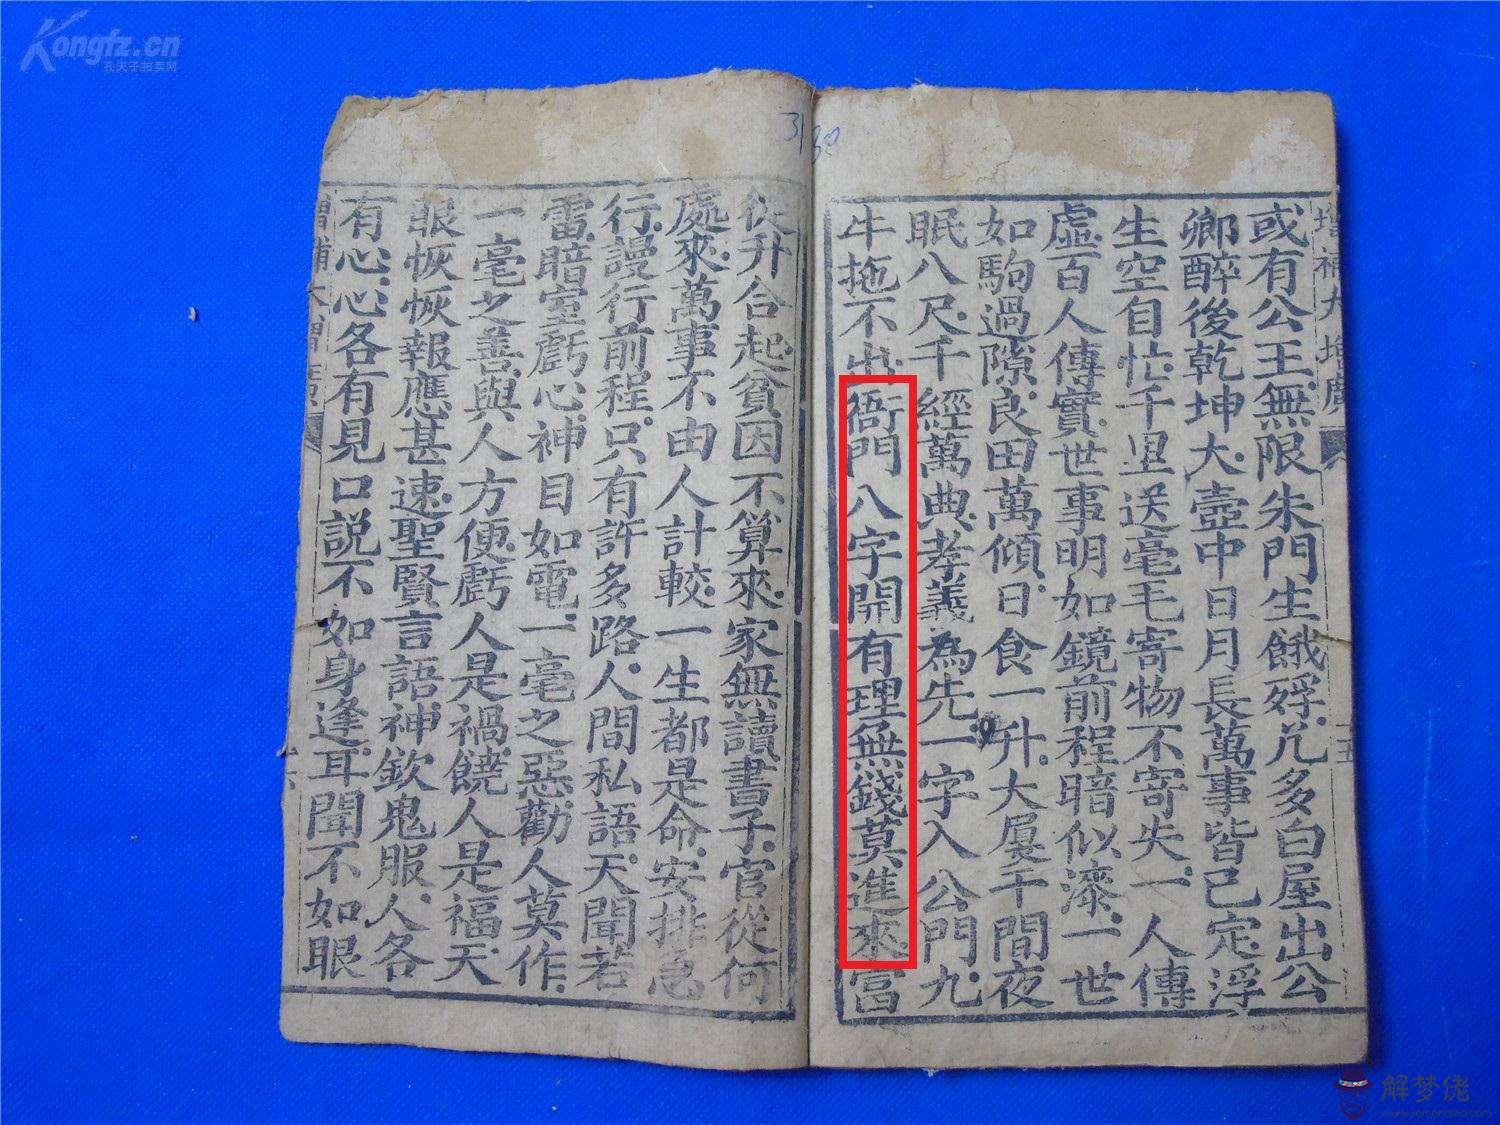 Kongfz.cn
孔夫子拍卖网
31
30
增補大增廣
十五
或有公王無限朱門生餓殍几多白屋出公
卿醉後乾坤大壺中日月長萬事皆已定浮
生空自忙千里送毫毛寄物不寄失一人傳
虛百人傳實世事明如鏡前程暗似漆一世
如駒過隙良田萬傾日食一升大廈千間夜
眠八尺千經萬典孝義為先一字入公門九
牛拖不出衙門八字開有理無錢莫進來富
從升合起貧因不算來家無讀書子官從何
處來萬事不由人計較一生都是命安排急
行謾行前程只有許多路人間私語天聞若
雷暗室虧心神目如電一毫之惡勸人莫作
一毫之善與人方便虧人是禍饒人是福天
眼恢恢報應甚速聖賢言語神欽鬼服人各
有心心各有見口説不如身逢耳聞不如眼
解梦佬